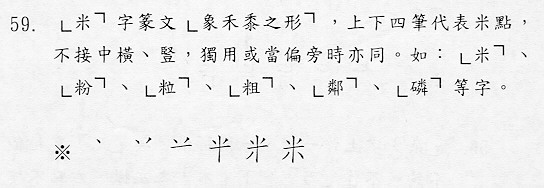 59. 「米」字篆文「象禾黍之形」，上下四筆代表米點，
不接中橫、豎，獨用或當偏旁時亦同。如：「米」、
「粉」、「粒」、「粗」、「鄰」、「磷」等字。
※ 丶 丷 䒑 半 米 米